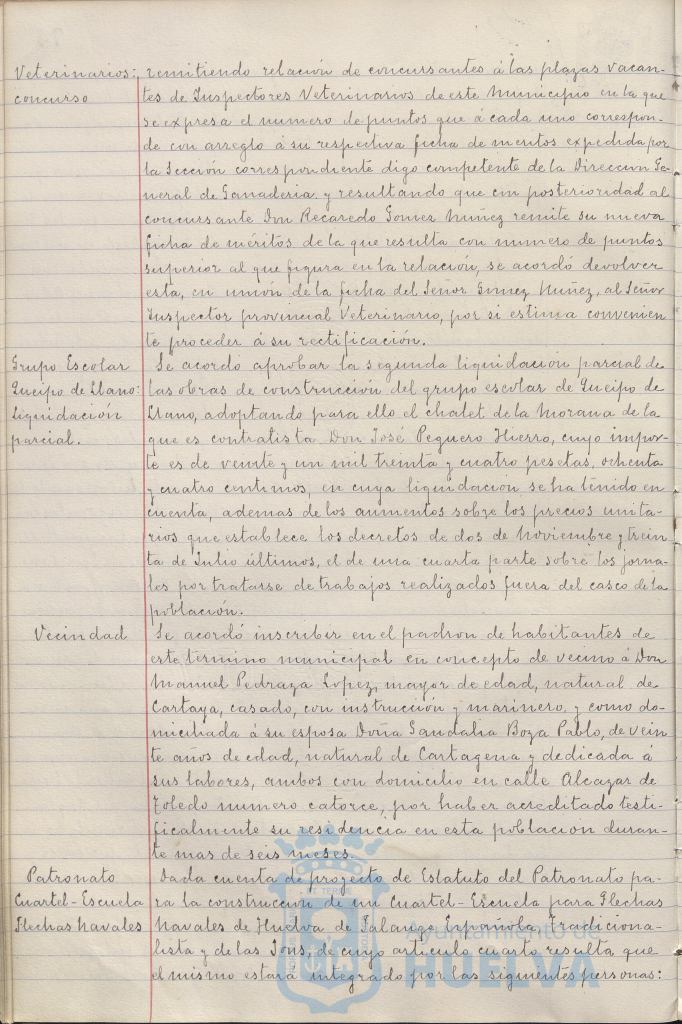 Veterinarios: remitiendo relación de concursantes á las plazas vacan-
concurso tes de Inspectores Veterinarios de este Municipio en la que
se expresa el numero de puntos que á cada uno correspon-
de con arreglo á su respectiva ficha de meritos expedida por
la Sección correspondiente digo competente de la Direccion Ge-
neral de Ganaderia. y resultando que con posterioridad al
concursante Don Recaredo Gomez Nuñez remite su nueva
ficha de méritos de la que resulta con numero de puntos
superior al que figura en la relación, se acordó devolver
esta, en unión de la ficha del Señor Gomez Nuñez, al Señor
Inspector provincial Veterinario, por si estima convenien
te proceder á su rectificación.
Grupo Escolar Se acordó aprobar la segunda liquidación parcial de
Queipo de Llano: las obras de construcción del grupo escolar de Queipo de
liquidación Llano, adoptando para ello el chalet de la Morana de la
parcial. que es contratista Don José Peguero Hierro, cuyo impor-
te es de veinte y un mil treinta y cuatro pesetas, ochenta
y cuatro centimos, en cuya liquidación se ha tenido en
cuenta, ademas de los aumentos sobre los precios unita-
rios que establece los decretos de dos de Noviembre y trein
ta de Julio últimos, el de una cuarta parte sobre los jorna-
les por tratarse de trabajos realizados fuera del casco de la
población.
Vecindad Se acordó inscribir en el padron de habitantes de
este termino municipal en concepto de vecino á Don
Manuel Pedraza Lopez, mayor de edad, natural de
Cartaya, casado, con instrucción y marinero, y como do-
miciliada á su esposa Doña Gaudalia Boza Pablo, de vein
te años de edad, natural de Cartagena y dedicada á
sus labores, ambos con domicilio en calle Alcazar de
Toledo numero catorce, por haber acreditado testi-
ficalmente su residencia en esta población duran-
te mas de seis meses.
Patronato Dada cuenta de proyecto de Estatuto del Patronato pa-
Cuartel-Escuela ra la construccion de un Cuartel-Escuela para Flechas
Flechas Navales Navales de Huelva de Falange Española, Tradiciona-
lista y de las Jons, de cuyo articulo cuarto resulta que
el mismo estará integrado por las siguientes personas:
Ayuntamiento de
HUELVA